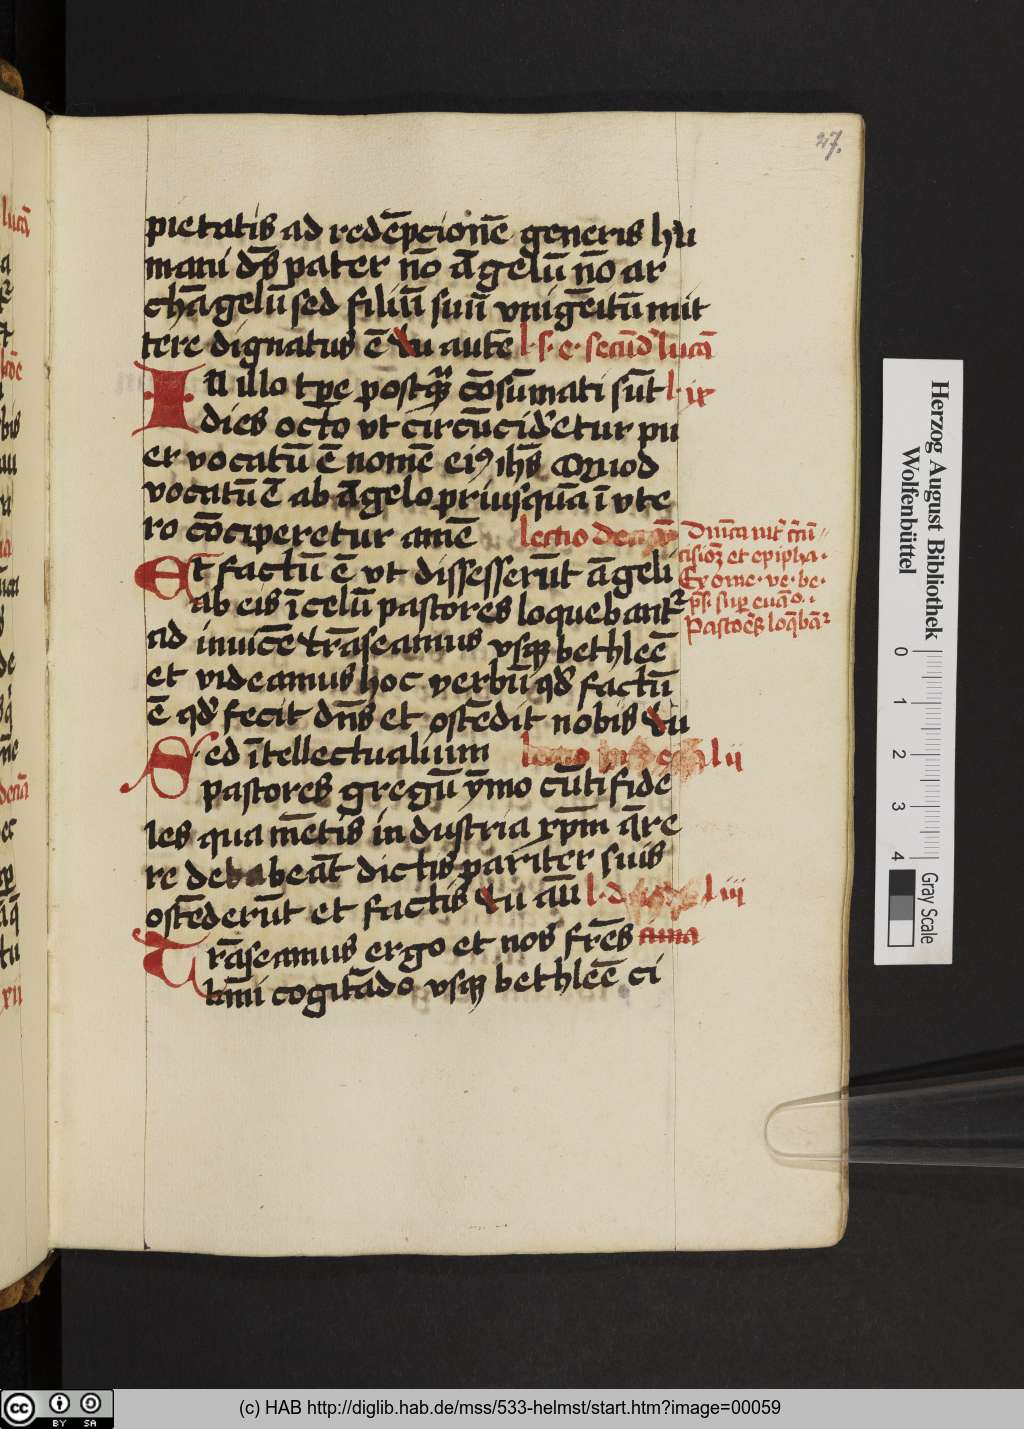 27.
pietatis ad redēpcionē generis hu
mani dn̄s pater nō āgelū nō ar
chāgelū sed filiū suū vnigēitū mit
tere dignatus ē tu autē l. s. e. secūd' lucā
In illo tp̄e postq̄ȝ cōsūmati sūt l. ix
dies octo vt circūcid'etur pu
er vocatū ē nomē eiꝰ ih̄s Quod
vocatū ē ab āgelo priusquā ī vte
ro cōciperetur amē lectio
Et factū ē vt dissesserūt āgeli
ab eis ī celū pastores loquebant᷑
ad inuicē trāseamus vsqȝ bethleē
et videamus hoc verbū qd̄ factū
ē qd̄ fecit dn̄s et ostēdit nobis tu
Sed ītellectualium lii
pastores gregū ymo cūti fide
les qua mētis industria xp̄m q̄re
re debabeāt dictis pariter suis
ostēderūt et factis tu aū liii
Trāseamus ergo et nos frēs
cogitādo vsqȝ bethleē ci
et epipha.
Ex ome. ve. be.
p̄s. sup euāo.
Pastoēs loq̄bāt᷑
Herzog August Bibliothek
Wolfenbüttel
0 1 2 3 4
Gray Scale
BY SA
(c) HAB http://diglib.hab.de/mss/533-helmst/start.htm?image=00059